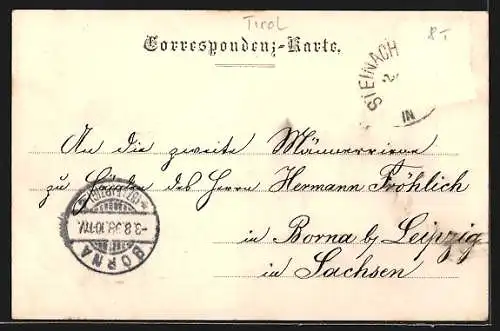 Tirol
8 T
Correspondenz-Karte.
STEINACH
2
IN
An die zweite Männerriene
zu Händen des Herrn Hermann Fröhlich
in Borna b/ Leipzig
in Sachsen
(BZ. LEIPZIG)
-3.8.98.10-11V.
BORNA